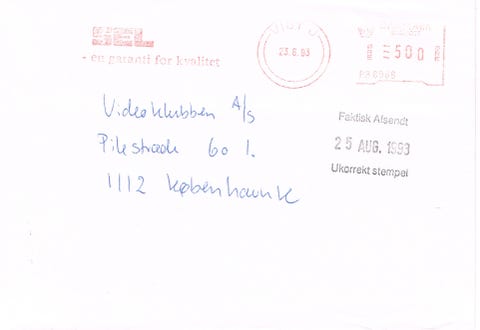 - en garanti for kvalitet
23.8.93
500
Videoklubben A/S
Pilestræde 60 1.
1112 København K
Faktisk Afsendt
25 AUG. 1993
Ukorrekt stempel